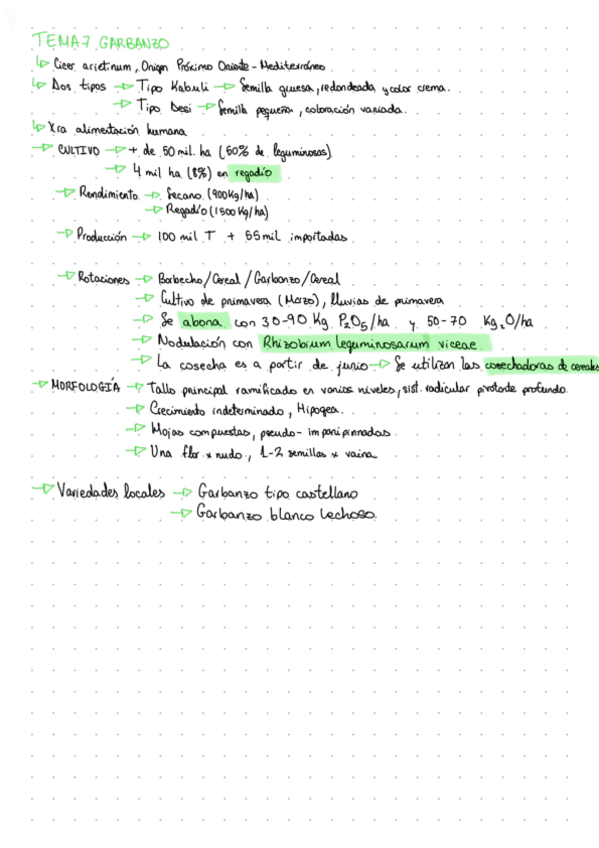 TEMA 7. GARBANZO
↳ Cicer arietinum, Origen Próximo Oriente - Mediterráneo.
↳ Dos tipos → Tipo Kabuli → Semilla gruesa, redondeada y color crema.
→ Tipo Desi → Semilla pequeña, coloración variada.
↳ Xra alimentación humana
→ CULTIVO → + de 50 mil ha (50% de leguminosas)
→ 4 mil ha (8%) en regadío
→ Rendimiento → Secano (900 Kg/ha)
→ Regadío (1500 Kg/ha)
→ Producción → 100 mil T + 55 mil importadas.
→ Rotaciones → Barbecho/Cereal/Garbanzo/Cereal
→ Cultivo de primavera (Marzo), lluvias de primavera
→ Se abona con 30-90 Kg P₂O₅/ha y 50-70 Kg K₂O/ha
→ Nodulación con Rhizobium leguminosarum viceae.
→ La cosecha es a partir de junio → Se utilizan las cosechadoras de cereales
→ MORFOLOGÍA → Tallo principal ramificado en varios niveles, sist. radicular pivotante profundo.
→ Crecimiento indeterminado, Hipogea.
→ Hojas compuestas, pseudo-imparipinnadas.
→ Una flor x nudo, 1-2 semillas x vaina
→ Variedades locales → Garbanzo tipo castellano
→ Garbanzo blanco lechoso.